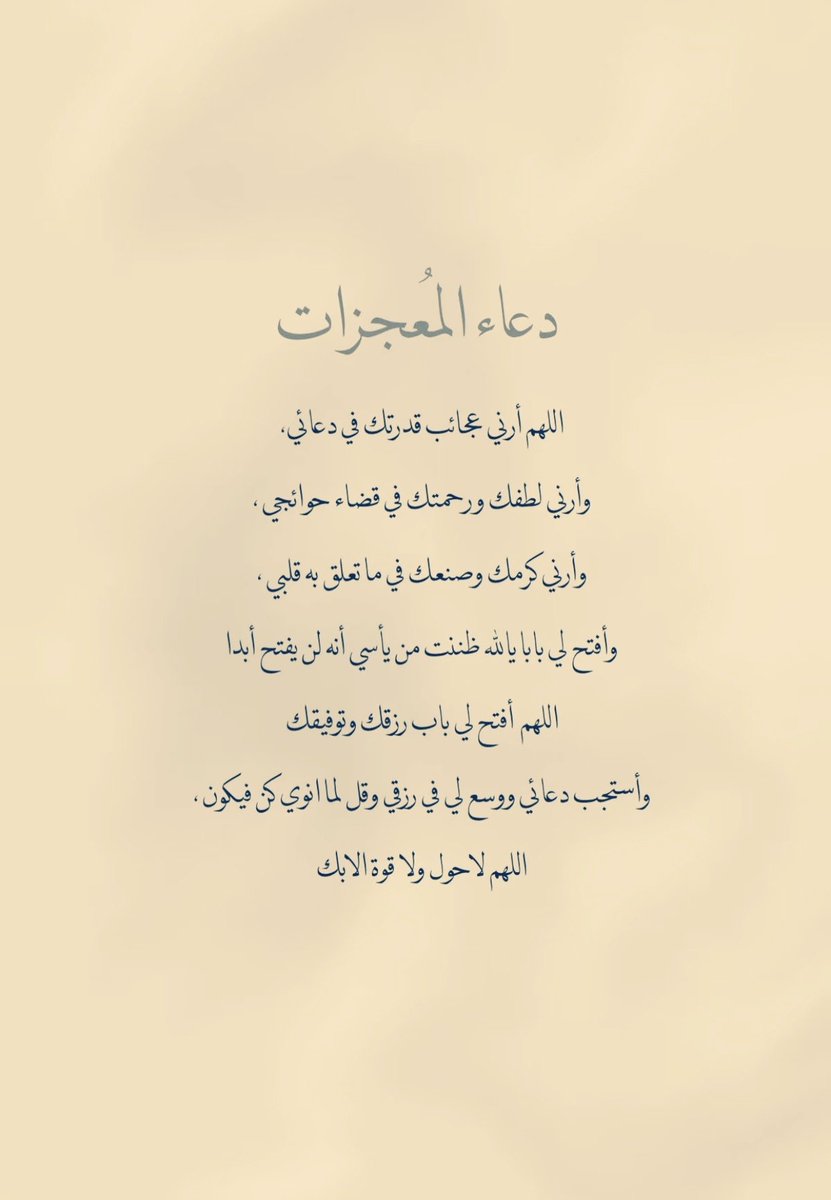 دعاء المُعجزات
اللهم أرني عجائب قدرتك في دعائي،
وأرني لطفك ورحمتك في قضاء حوائجي ،
وأرني كرمك وصنعك في ما تعلق به قلبي ،
وأفتح لي بابا يالله ظننت من يأسي أنه لن يفتح أبدا
اللهم أفتح لي باب رزقك وتوفيقك
وأستجب دعائي ووسع لي في رزقي وقل لما انوي كن فيكون ،
اللهم لاحول ولا قوة الابك